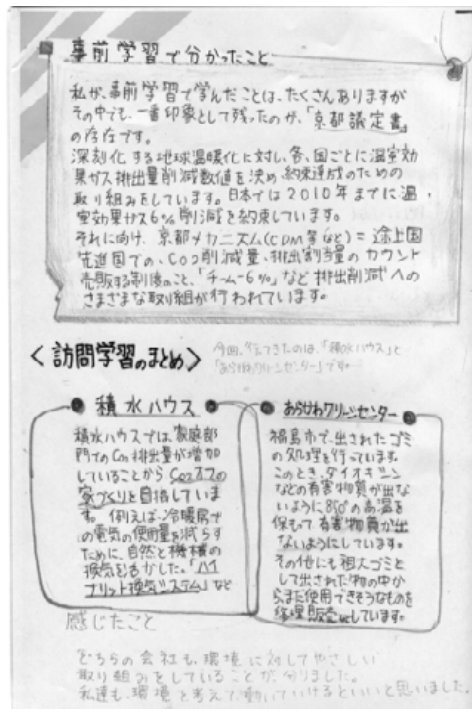 事前学習で分かったこと
私が、事前学習で学んだことは、たくさんありますが
その中でも、一番印象として残ったのが、「京都議定書」
の存在です。
深刻化する地球温暖化に対し、各、国ごとに温室効
果ガス排出量削減数値を決め、約束達成のための
取り組みをしています。日本では2010年までに温
室効果ガス6%削減を約束しています。
それに向け、京都メカニズム(CDM等など)=途上国
先進国での、CO2削減量、排出割当量のカウント
売販する制度のこと、「チーム-6%」など排出削減への
さまざまな取り組が行われています。
<訪問学習のまとめ>
今回、行ってきたのは、「積水ハウス」と
「あらかわクリーンセンター」です。
積水ハウス
積水ハウスでは、家庭部
門でのCO2排出量が増加
していることからCO2オフの
家づくりを目指していま
す。例えば、冷暖房で
の電気の使用量を減らす
ために、自然と機械の
換気を活かした。「ハイ
ブリット換気システム」など
あらかわクリーンセンター
福島市で、出されたゴミ
の処理を行っています。
このとき、ダイオキシン
などの有害物質が出な
いように850°の高温を
保もって有害物質が出
ないようにしています。
その他にも粗大ゴミと
して出された物の中か
らまだ使用できそうなものを
修理販売にしています。
感じたこと
どちらの会社も、環境に対してやさしい
取り組みをしていることが、分りました。
私達も、環境を考えて動いていけるといいと思いました。